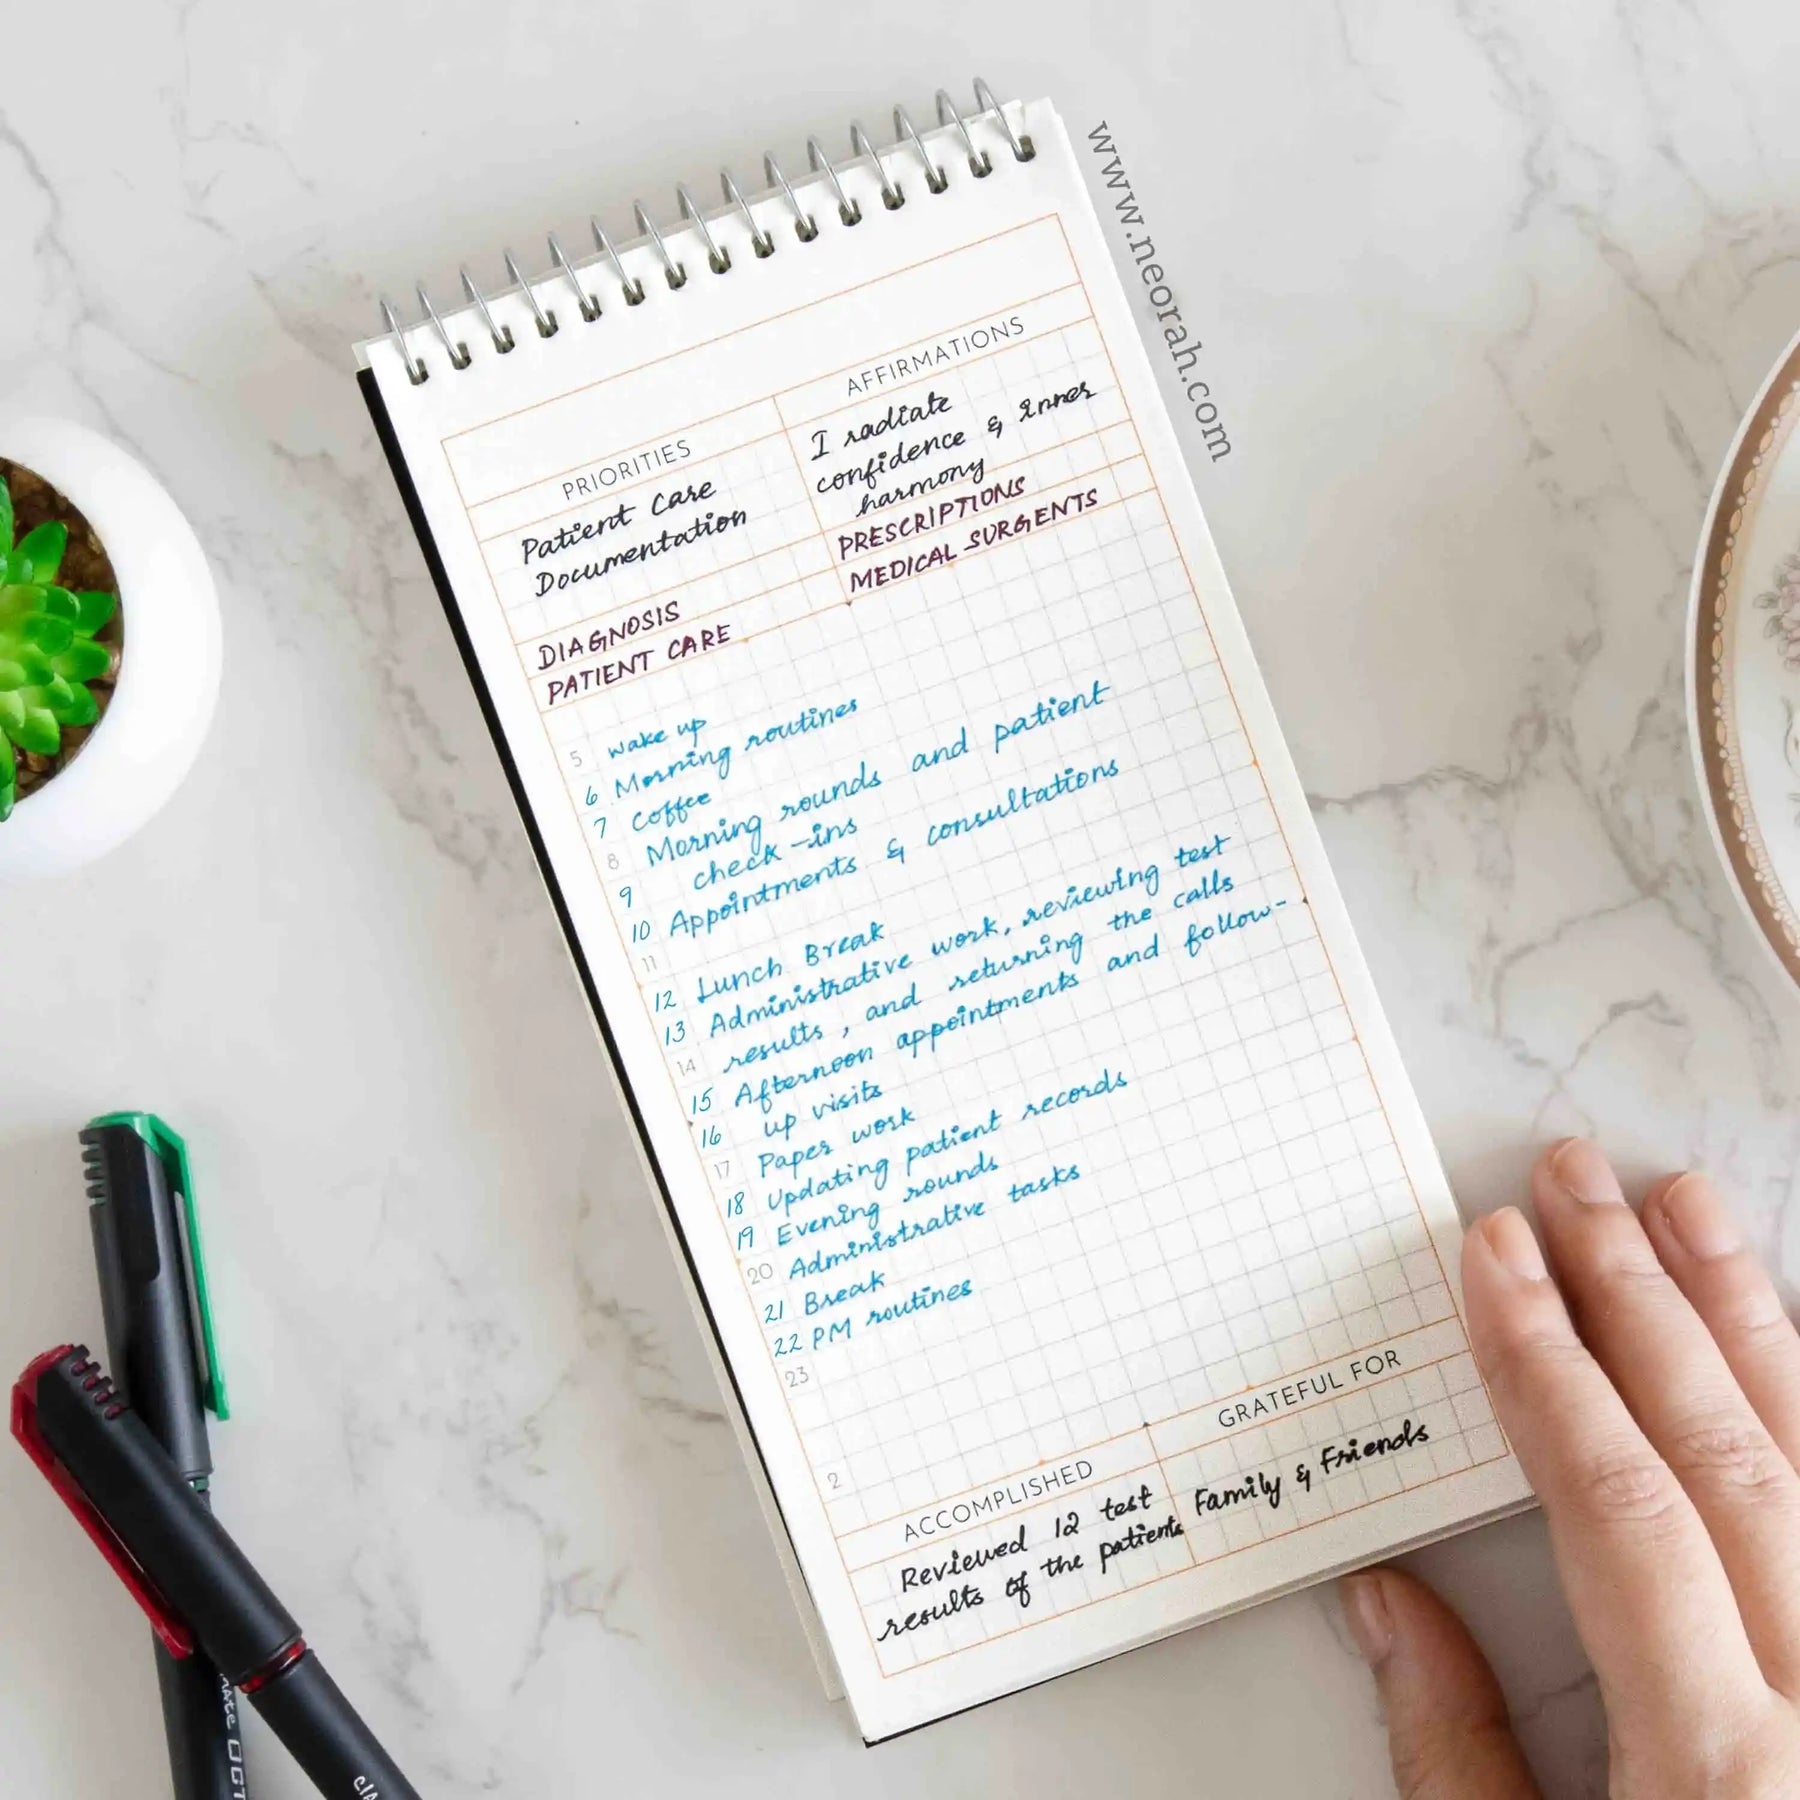 www.neorah.com
PRIORITIES
Patient Care
Documentation
AFFIRMATIONS
I radiate
confidence & inner
harmony
DIAGNOSIS
PATIENT CARE
PRESCRIPTIONS
MEDICAL SURGENTS
5 wake up
6 Morning routines
7 Coffee
8 Morning rounds and patient
9 check-ins
10 Appointments & consultations
11
12 Lunch Break
13 Administrative work, reviewing test
14 results, and returning the calls
15 Afternoon appointments and follow-
16 up visits
17 Paper work
18 Updating patient records
19 Evening rounds
20 Administrative tasks
21 Break
22 PM routines
23
2
ACCOMPLISHED
Reviewed 12 test
results of the patients
GRATEFUL FOR
Family & Friends